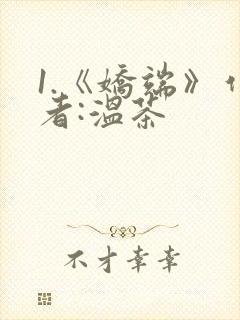 1.《嬌端》作
者:溫茶
不才幸幸